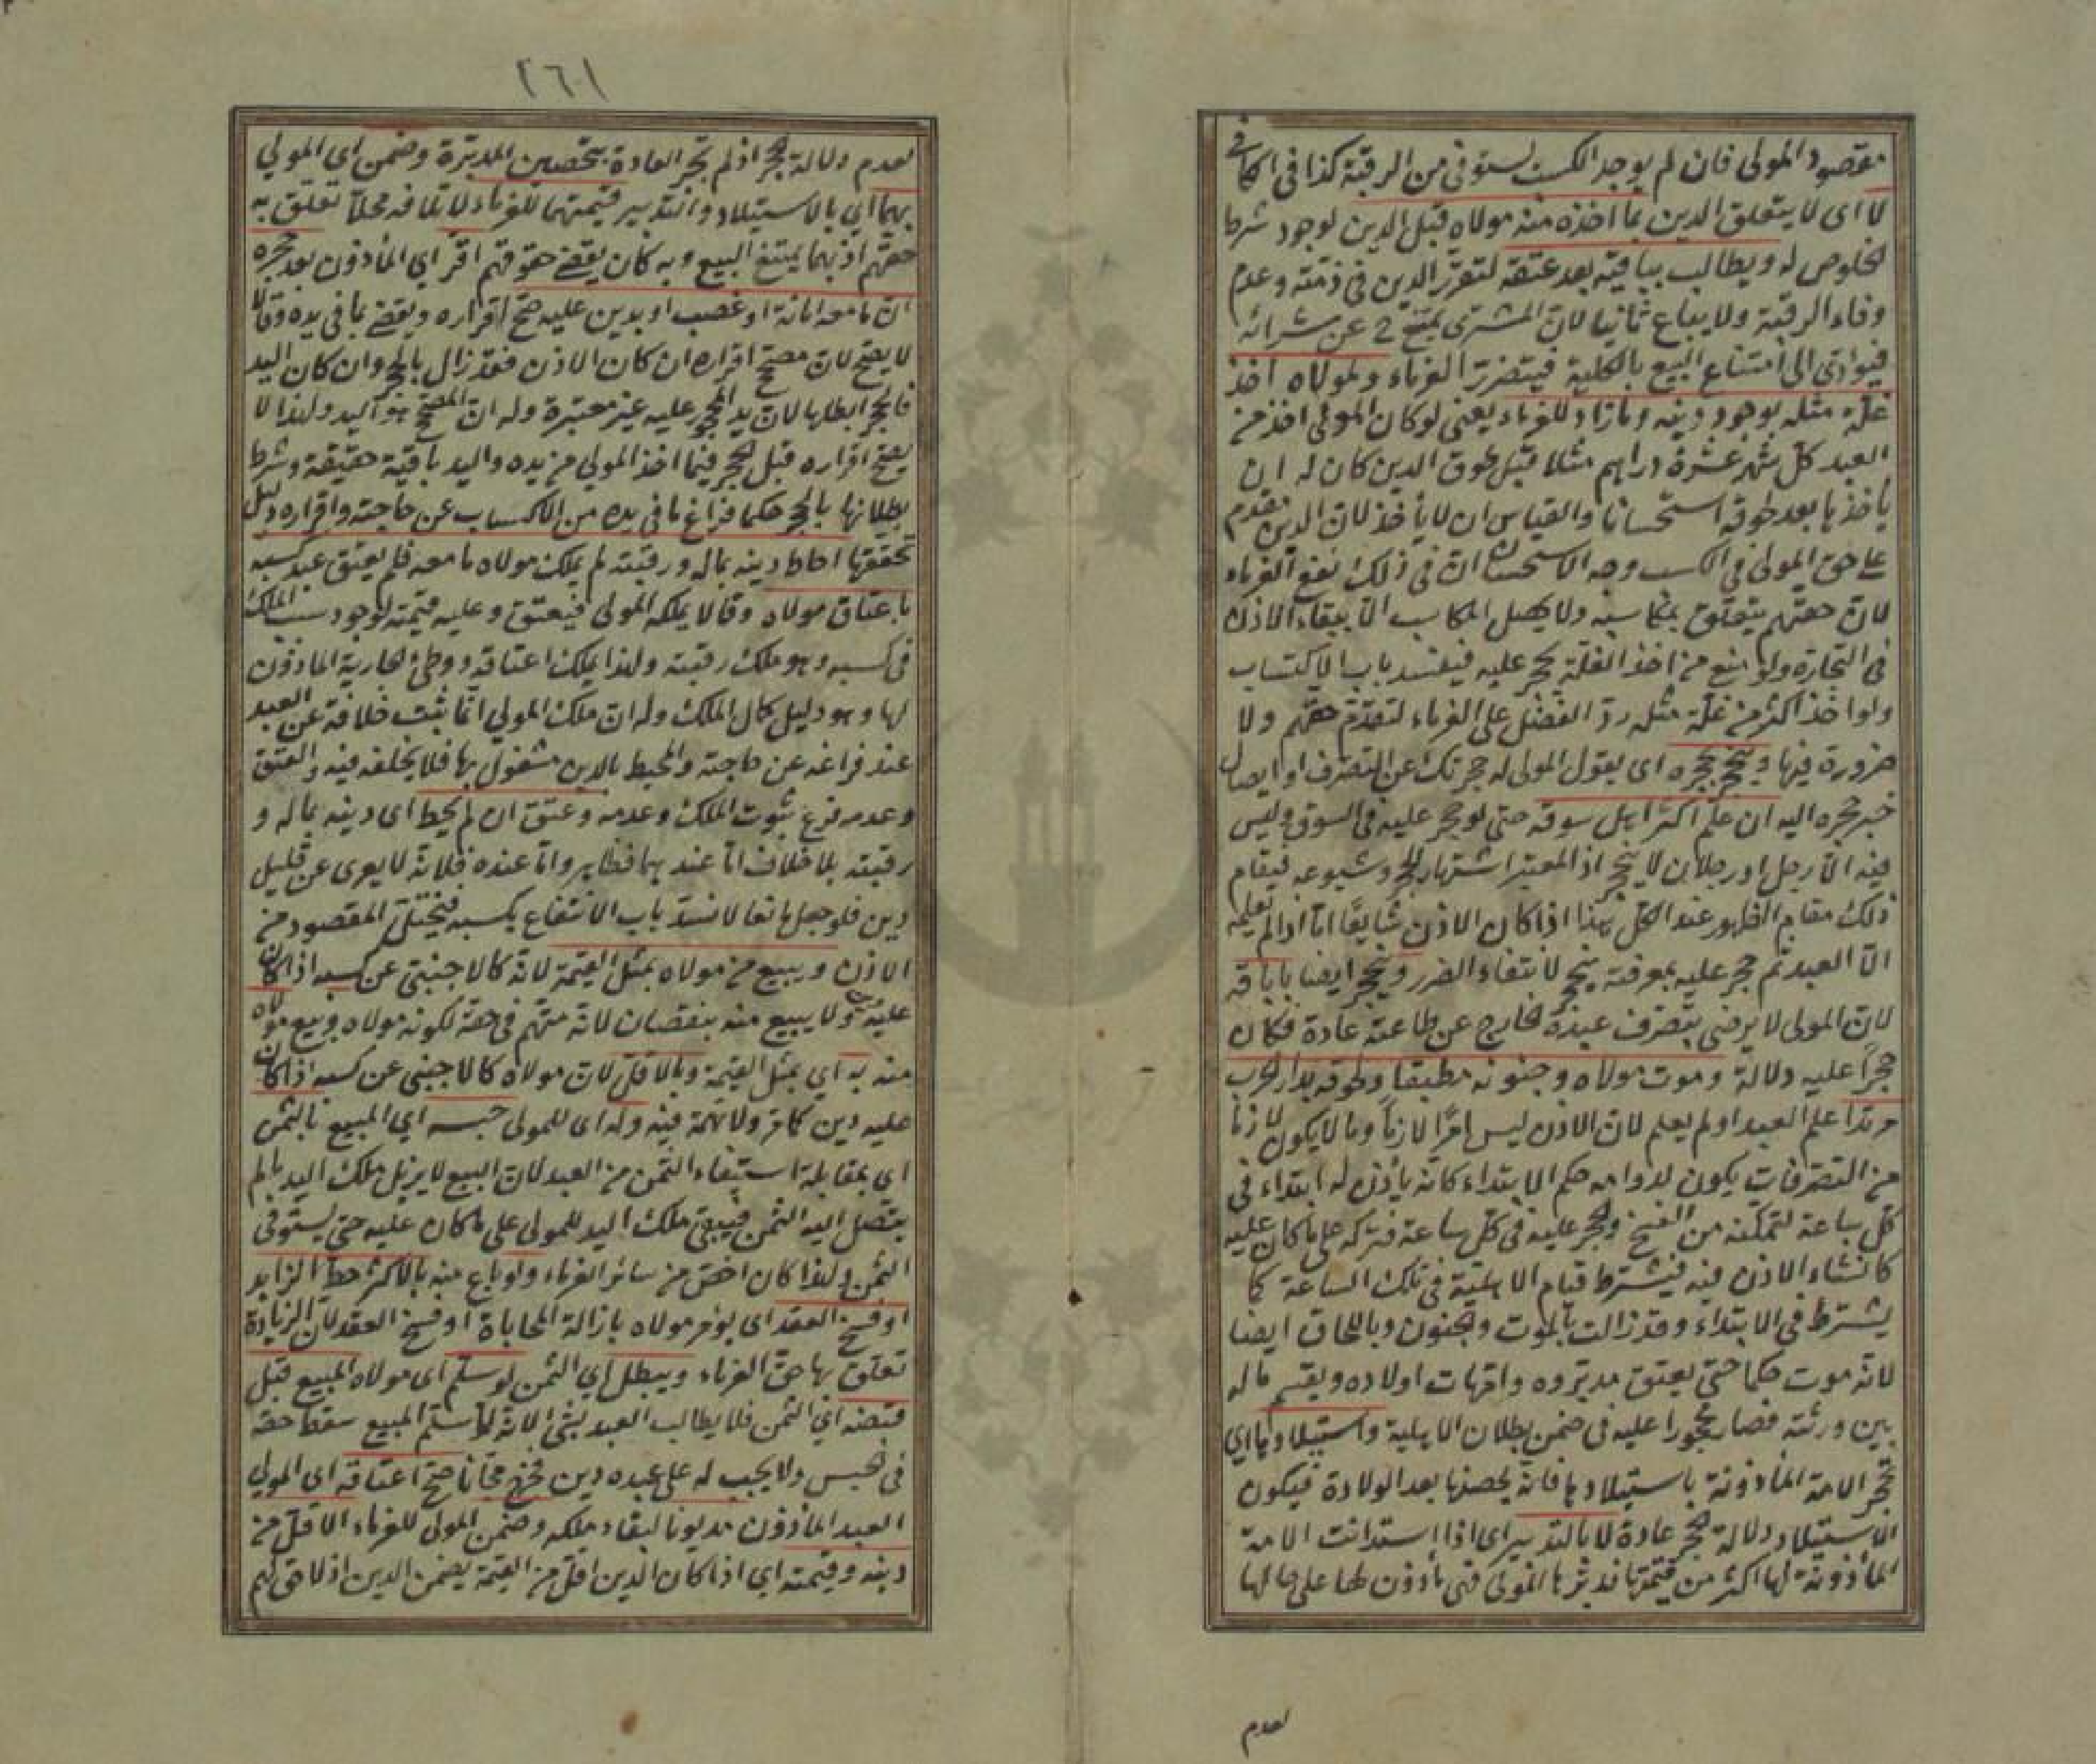 مقصود المولى فان لم يوجد الكسب يستوفى من الرقبة كذا في الكافي
لا اى لا يتعلق الدين بما اخذه منه مولاه قبل الدين لوجود شرط
الخلوص له ويطالب بباقيه بعد عتقه لتقرر الدين فى ذمته وعدم
وفاء الرقبة ولا يباع ثانيا لان المشترى يمتنع ح عن شرائه
فيؤدى الى امتناع البيع بالكلية فيتضرر الغرماء ولمولاه اخذ
غلة مثله بوجود دينه وما زاد للغرماء يعنى لو كان المولى اخذ من
العبد كل شهر عشرة دراهم مثلا قبل لحوق الدين كان له ان
يأخذها بعد لحوقه استحسانا والقياس ان لا يأخذ لان الدين مقدم
على حق المولى فى الكسب وجه الاستحسان ان فى ذلك نفع الغرماء
لان حقهم يتعلق بمكاسبه ولا يحصل المكاسب الا ببقاء الاذن
فى التجارة ولو امنع من اخذ الغلة يحجر عليه فينسد باب الاكتساب
ولو اخذ اكثر من غلة مثله رد الفضل على الغرماء لتقدم حقهم ولا
ضرورة فيها وينحجر بحجره اى بقول المولى له حجرتك عن التصرف او ايصال
خبر حجره اليه ان علم اكثر اهل سوقه حتى لو حجر عليه فى السوق وليس
فيه الا رجل او رجلان لا ينحجر اذ المعتبر اشتهار الحجر وشيوعه فيقام
ذلك مقام الظهور عند الكل هذا اذا كان الاذن شايعا اما اذا لم يعلمه
الا العبد ثم حجر عليه بمعرفته ينحجر لانتفاء الضرر وينحجر ايضا باباقه
لان المولى لا يرضى بتصرف عبده الخارج عن طاعته عادة فكان
حجرا عليه دلالة وموت مولاه وجنونه مطبقا ولحوقه بدار الحرب
مرتدا علم العبد او لم يعلم لان الاذن ليس امرا لازما وما لا يكون لازما
من التصرفات يكون لدوامه حكم الابتداء كانه يأذن له ابتداء فى
كل ساعة لتمكنه من الفسخ والحجر عليه فى كل ساعة فتركه على ما كان عليه
كانشاء الاذن فيه فيشترط قيام الاهلية فى تلك الساعة كما
يشترط فى الابتداء وقد زالت بالموت والجنون وباللحاق ايضا
لانه موت حكما حتى يعتق مدبروه وامهات اولاده ويقسم ماله
بين ورثته فصار محجورا عليه فى ضمن بطلان الاهلية واستيلادها اي
تحجر الامة المأذونة باستيلادها فانه يحصنها بعد الولادة فيكون
الاستيلاد دلالة الحجر عادة لا بالتدبير اى اذا استدانت الامة
المأذونة لها اكثر من قيمتها فدبرها المولى فهى مأذون لها على حالها
لعدم
٢٦١
لعدم دلالة الحجر اذ لم تجر العادة بتحصين المدبرة وضمن اى المولي
بهما اي بالاستيلاد والتدبير قيمتهما للغرماء لاتلافه محلا تعلق به
حقهم اذ بهما يمتنع البيع وبه كان يقضى حقوقهم اقر اي المأذون بعد حجره
ان ما معه امانة او غصب او بدين عليه صح اقراره ويقضى مما فى يده وقالا
لا يصح لان مصحح اقراره ان كان الاذن فقد زال بالحجر وان كان اليد
فالحجر ابطلها لان يد المحجور عليه غير معتبرة وله ان المصحح هو اليد ولهذا لا
يصح اقراره قبل الحجر فيما اخذ المولي من يده واليد باقية حقيقة وشرط
بطلانها بالحجر حكما فراغ ما فى يده من الاكساب عن حاجته واقراره دليل
تحققها احاط دينه بماله ورقبته لم يملك مولاه ما معه فلم يعتق عبد كسبه
باعتاق مولاه وقالا يملكه المولى فيعتق وعليه قيمته لوجود سبب الملك
فى كسبه وهو ملك رقبته ولهذا يملك اعتاقه ووطئ الجارية المأذون
لها وهو دليل كمال الملك وله ان ملك المولي انما يثبت خلافة عن العبد
عند فراغه عن حاجته والمحيط بالدين مشغول بها فلا يخلفه فيه والعتق
وعدمه فرع ثبوت الملك وعدمه وعتق ان لم يحط اى دينه بماله و
رقبته بلا خلاف اما عندهما فظاهر واما عنده فلانه لا يعرى عن قليل
دين فلو جعل مانعا لانسد باب الانتفاع بكسبه فيختل المقصود من
الاذن ويبيع من مولاه بمثل القيمة لانه كالاجنبى عن كسبه اذا كان
عليه دين ولا يبيع منه بنقصان لانه متهم فى حقه لكونه مولاه وبيع مولاه
منه به اي بمثل القيمة وبالاقل لان مولاه كالاجنبى عن كسبه اذا كان
عليه دين كما مر ولا تهمة فيه وله اى للمولى حبسه اي المبيع بالثمن
اى بمقابلة استيفاء الثمن من العبد لان البيع لا يزيل ملك اليد ما لم
يتصل اليه الثمن فيبقى ملك اليد للمولى على ما كان عليه حتى يستوفى
الثمن ولهذا كان اخص من سائر الغرماء ولو باع منه بالاكثر حط الزايد
او فسخ العقد اى يؤمر مولاه بازالة المحاباة او فسخ العقد لان الزيادة
تعلق بها حق الغرماء ويبطل اي الثمن لو سلم اى مولاه المبيع قبل
قبضه اي الثمن فلا يطالب العبد بشئ لانه لما سلم المبيع سقط حقه
فى الحبس ولا يجب له على عبده دين فخرج مجانا صح اعتاقه اى المولي
العبد المأذون مديونا لبقاء ملكه وضمن المولى للغرماء الاقل من
دينه وقيمته اي اذا كان الدين اقل من القيمة يضمن الدين اذ لا حق لهم